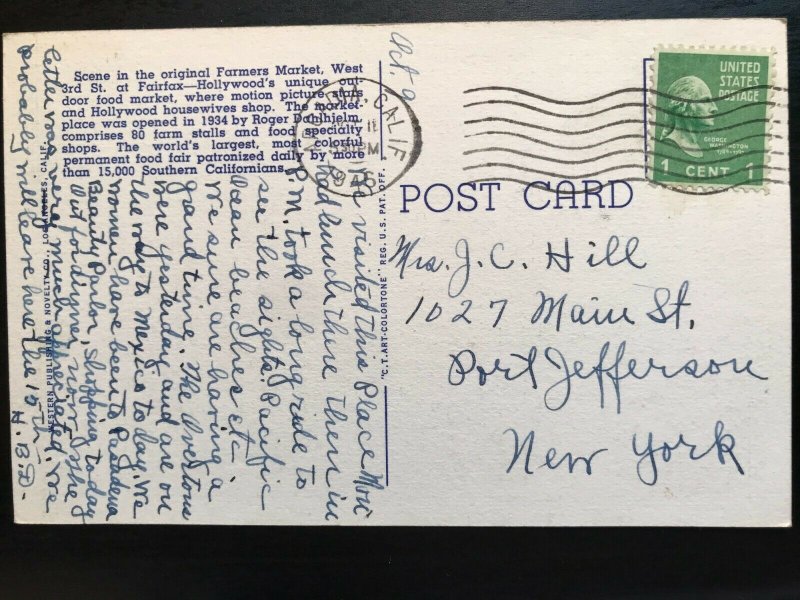 Scene in the original Farmers Market, West
3rd St. at Fairfax—Hollywood's unique out-
door food market, where motion picture stars
and Hollywood housewives shop. The market-
place was opened in 1934 by Roger Dahlhjelm,
comprises 80 farm stalls and food specialty
shops. The world's largest, most colorful
permanent food fair patronized daily by more
than 15,000 Southern Californians.
WESTERN PUBLISHING & NOVELTY CO., LOS ANGELES, CALIF.
"C.T. ART-COLORTONE" REG. U.S. PAT. OFF.
POST CARD
UNITED
STATES
POSTAGE
GEORGE
WASHINGTON
1 CENT 1
CALIF
Oct. 9
We visited this Place
had lunch there then in
P.M. took a long ride to
see the sights. Pacific
ocean beaches etc.
We sure are having a
grand time. The Overtons
here yesterday and are on
the way to Mexico today. We
women have been to Pasadena
Beauty Parlor, shopping today
Out for dinner now. The
letter was very much appreciated. We
probably will leave here the 15th
H.B.D.
Mrs. J. C. Hill
1027 Main St,
Port Jefferson
New York